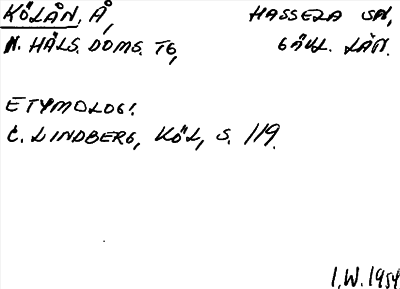 KÖLÅN, Å, HASSELA SN,
N. HÄLS. DOMS. TG, GÄVL. LÄN.
ETYMOLOGI:
C. LINDBERG, KÖL, S. 119.
I.W. 1954